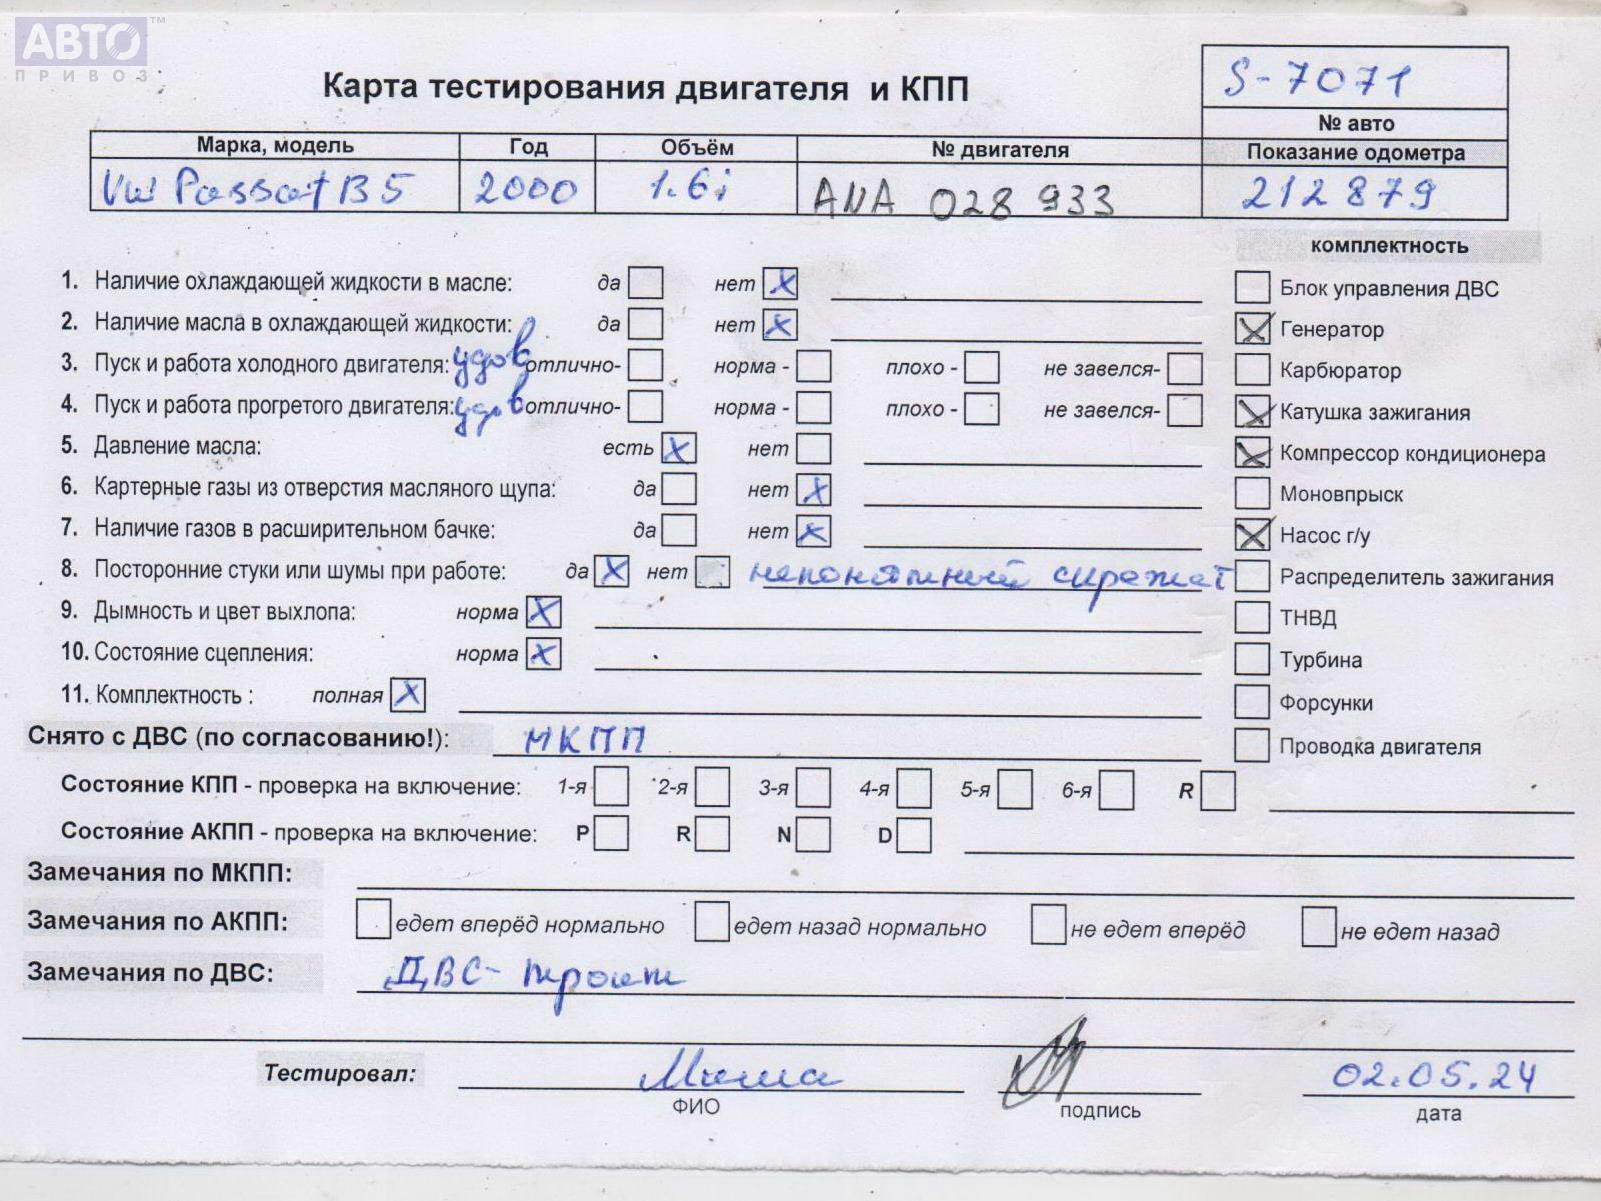 АВТО™
ПРИВОЗ
Карта тестирования двигателя и КПП
S-7071
№ авто
Марка, модель Год Объём № двигателя Показание одометра
VW Passat B5 2000 1.6i ANA 028 933 212879
комплектность
1. Наличие охлаждающей жидкости в масле: да нет X
Блок управления ДВС
2. Наличие масла в охлаждающей жидкости: да нет X
X Генератор
3. Пуск и работа холодного двигателя: удов отлично- норма - плохо - не завелся-
Карбюратор
4. Пуск и работа прогретого двигателя: удов отлично- норма - плохо - не завелся-
X Катушка зажигания
5. Давление масла: есть X нет
X Компрессор кондиционера
6. Картерные газы из отверстия масляного щупа: да нет X
Моновпрыск
7. Наличие газов в расширительном бачке: да нет X
X Насос г/у
8. Посторонние стуки или шумы при работе: да X нет непонятный
Распределитель зажигания
9. Дымность и цвет выхлопа: норма X
ТНВД
10. Состояние сцепления: норма X
Турбина
11. Комплектность : полная X
Форсунки
Снято с ДВС (по согласованию!): МКПП
Проводка двигателя
Состояние КПП - проверка на включение: 1-я 2-я 3-я 4-я 5-я 6-я R
Состояние АКПП - проверка на включение: P R N D
Замечания по МКПП:
Замечания по АКПП: едет вперёд нормально едет назад нормально не едет вперёд не едет назад
Замечания по ДВС: ДВС - троит
Тестировал: Миша 02.05.24
ФИО подпись дата